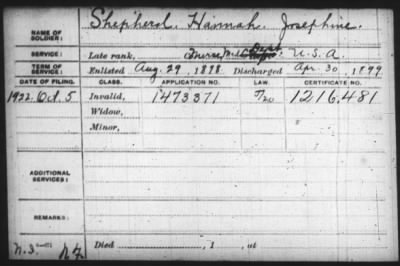 NAME OF SOLDIER: Shepherd, Hannah Josephine.
SERVICE: Late rank, Nurse Med Dept. U.S.A.
TERM OF SERVICE: Enlisted Aug. 29, 1898, Discharged Apr. 30, 1899
DATE OF FILING. CLASS. APPLICATION NO. LAW. CERTIFICATE NO.
1922, Oct. 5 Invalid, 1473371 1,216,481
Widow,
Minor,
ADDITIONAL SERVICES:
REMARKS:
Died , 1 , at